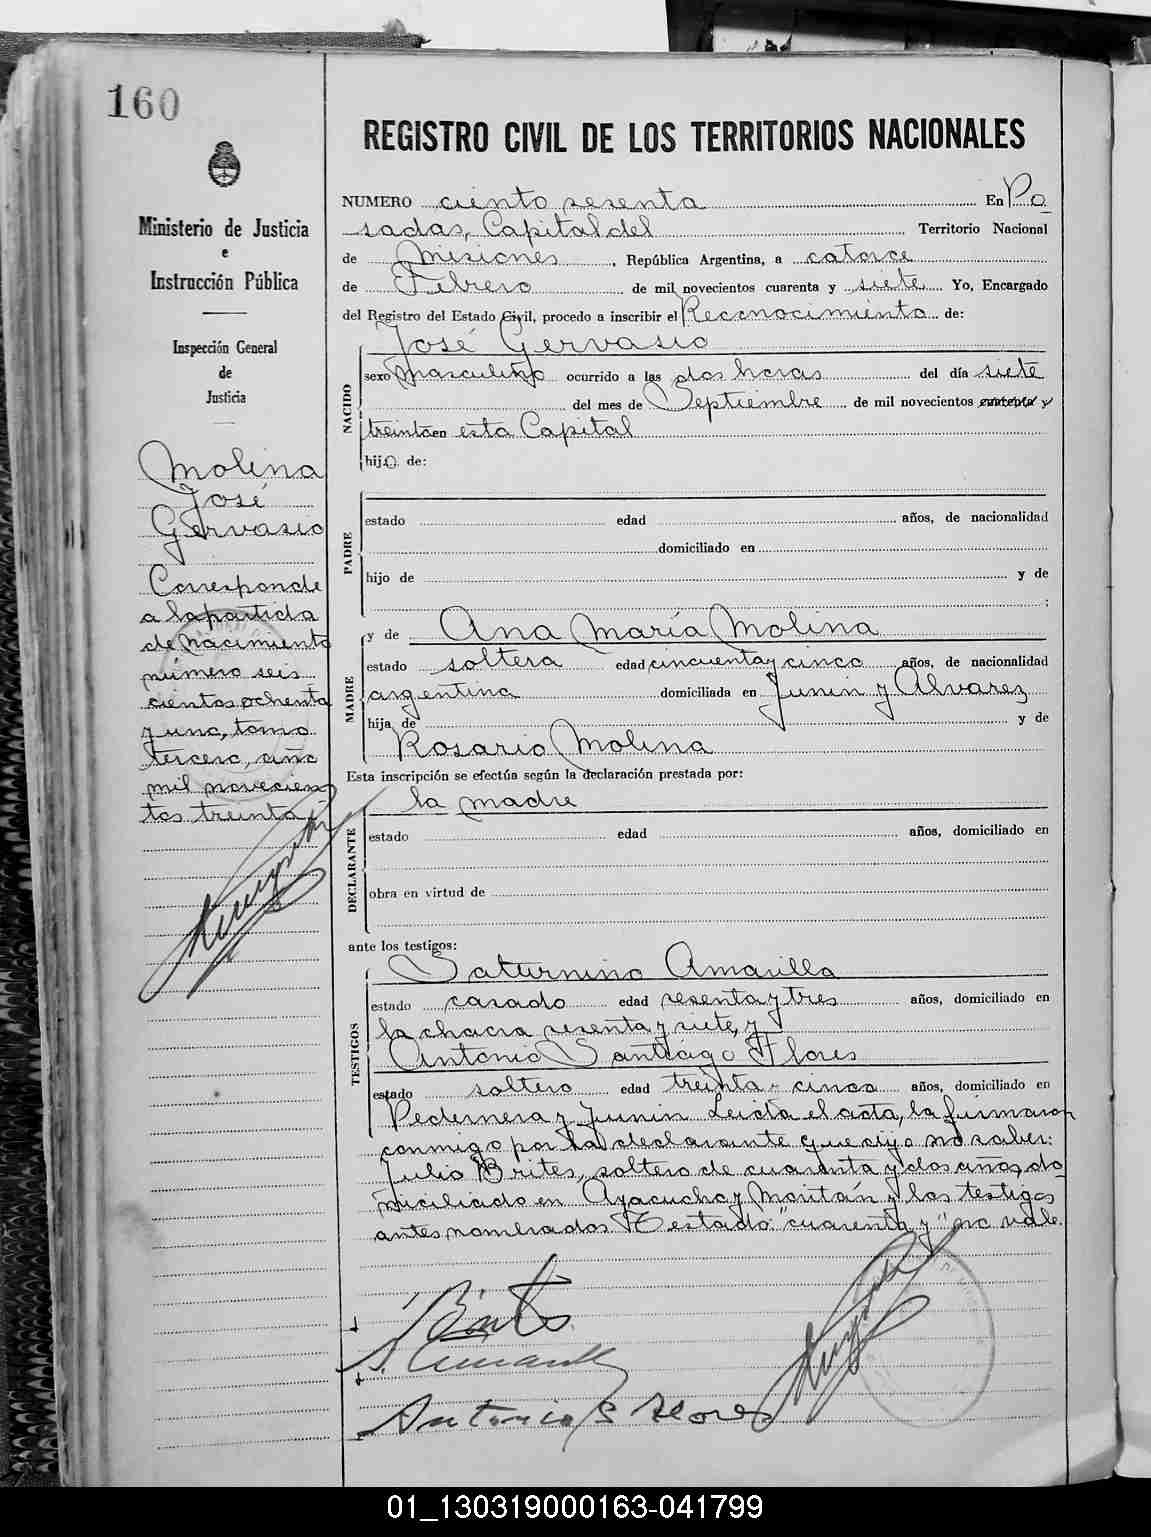 160
Ministerio de Justicia
e
Instrucción Pública
Inspección General
de
Justicia
Molina
José
Gervasio
Corresponde
a la partida
de nacimiento
número seis
cientos ochenta
y uno, tomo
tercero, año
mil novecien
tos treinta
REGISTRO CIVIL DE LOS TERRITORIOS NACIONALES
NUMERO ciento sesenta En Po
sadas, Capital del Territorio Nacional
de Misiones, República Argentina, a catorce
de Febrero de mil novecientos cuarenta y siete Yo, Encargado
del Registro del Estado Civil, procedo a inscribir el Reconocimiento de:
José Gervasio
NACIDO
sexo masculino ocurrido a las dos horas del día siete
del mes de Septiembre de mil novecientos cuarenta y
treinta en esta Capital
hijo de:
PADRE
estado edad años, de nacionalidad
domiciliado en
hijo de y de
:
MADRE
y de Ana María Molina
estado soltera edad cincuenta y cinco años, de nacionalidad
argentina domiciliada en Junin y Alvarez
hija de y de
Rosario Molina
Esta inscripción se efectúa según la declaración prestada por:
la madre
DECLARANTE
estado edad años, domiciliado en
obra en virtud de
ante los testigos:
TESTIGOS
Saturnino Amarilla
estado casado edad sesenta y tres años, domiciliado en
la chacra sesenta y siete, y
Antonio Santiago Flores
estado soltero edad treinta y cinco años, domiciliado en
Pedernera y Junin Leida el acta, la firmaron
conmigo por la declarante que dijo no saber:
Julio Brites, soltero de cuarenta y dos años, do
miciliado en Ayacucho y Moritán y los testigos
antes nombrados Testado: "cuarenta y" no vale.
S. Amarilla
Antonio S Flores
01_130319000163-041799